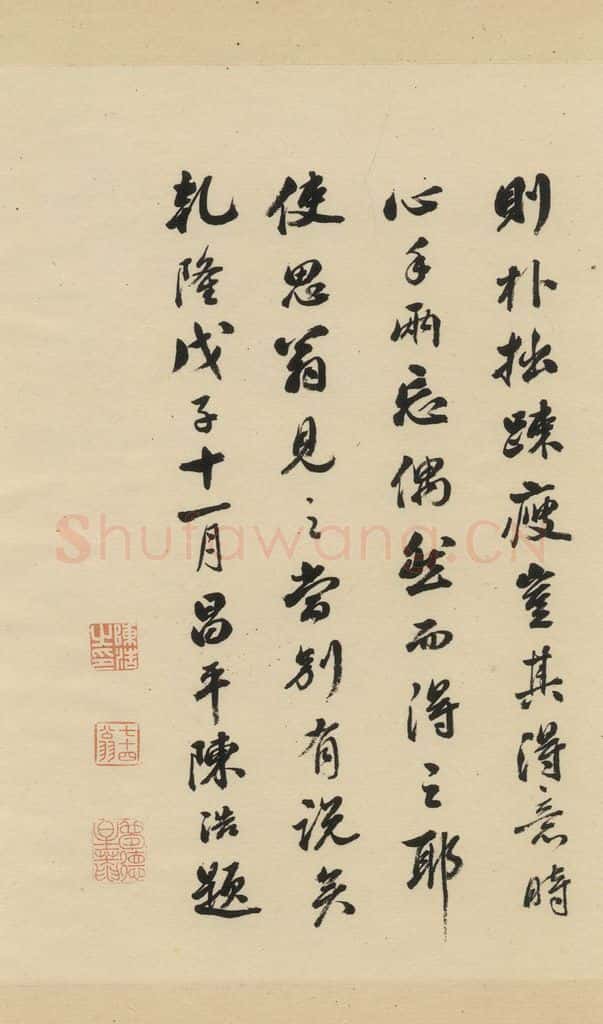 則朴拙疎瘦豈其得意時
心手兩忘偶然而得之耶
使思翁見之當別有说矣
乾隆戊子十一月昌平陳浩題
陳浩之印
七十四翁
Shufawang.CN